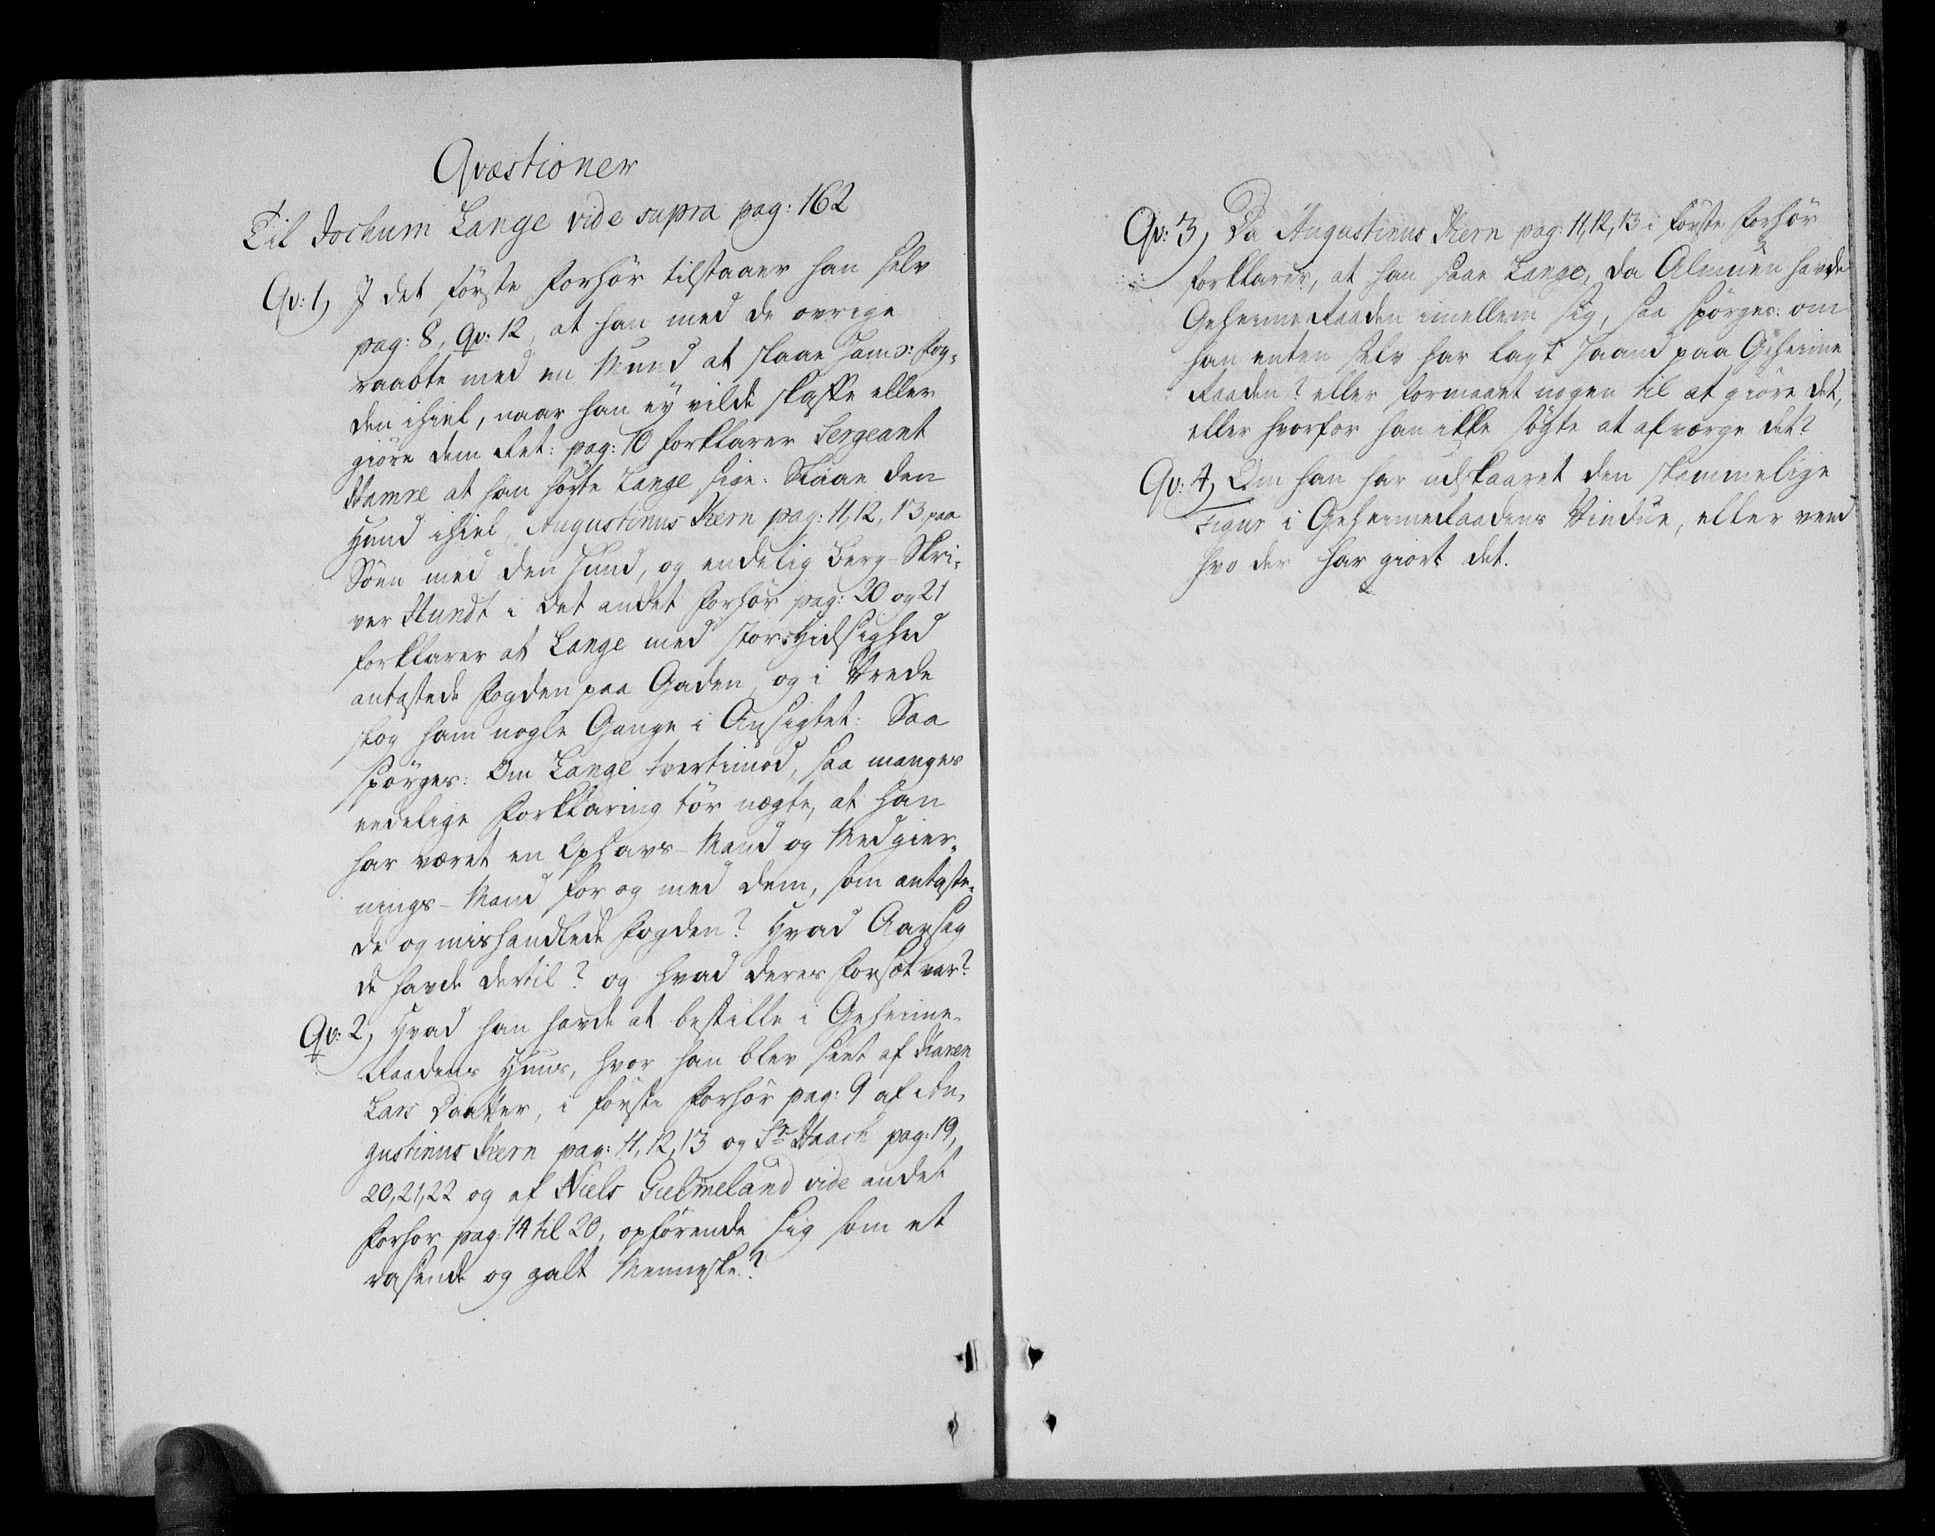 Qvæstioner
Til Jochum Lange vide supra pag: 162
Qv: 1, I det förste Forhör tilstaaer han selv
pag: 8, Qv: 12, at han med de ovrige
raabte med en Mund at slaae Fog-
den ihiel, naar han ey vilde skaffe eller
giöre dem Ret: pag: 10 forklarer Sergeant
Hamre at han hörte Lange sige: Slaae den
Hund ihiel, Augustinus Kern pag: 11, 12, 13, paa
Söen med den Hund, og endelig Berg-Skri-
ver Hundt i det andet Forhör pag: 20 og 21
forklarer at Lange med stor Hidsighed
antastede Fogden paa Gaden, og i Vrede
slog ham nogle Gange i Ansigtet: Saa
spörges: Om Lange tvertimod, saa manges
eedelige Forklaring tör nægte, at han
har været en Ophavs-Mand og Medgier-
nings-Mand for og med dem, som antaste-
de og mishandlede Fogden? Hvad Aarsag
de havde dertil? og hvad deres Forsæt var?
Qv: 2, Hvad han havde at bestille i Geheime-
Raadens Huus, hvor han blev seet af Karen
Lars Daatter, i förste Forhör pag: 9 af Au-
gustinus Kern pag: 11, 12, 13 og Sr Haach pag: 19,
20, 21, 22 og af Niels Gielmeland vide andet
Forhör pag: 14 til 20, opförende sig som et
rasende og galt Menneske?
Qv: 3, Da Augustinus Kern pag: 11, 12, 13 i förste Forhör
forklarer, at han saae Lange, da Almuen havde
Geheime Raaden imellem sig, saa spörges: om
han enten selv har lagt Haand paa Geheime
Raaden? eller formaaet nogen til at giöre det,
eller hvorfor han ikke sögte at afværge det?
Qv: 4, Om han har udskaaret den skammelige
Figur i Geheime Raadens Vindue, eller veed
hvo der har giort det.